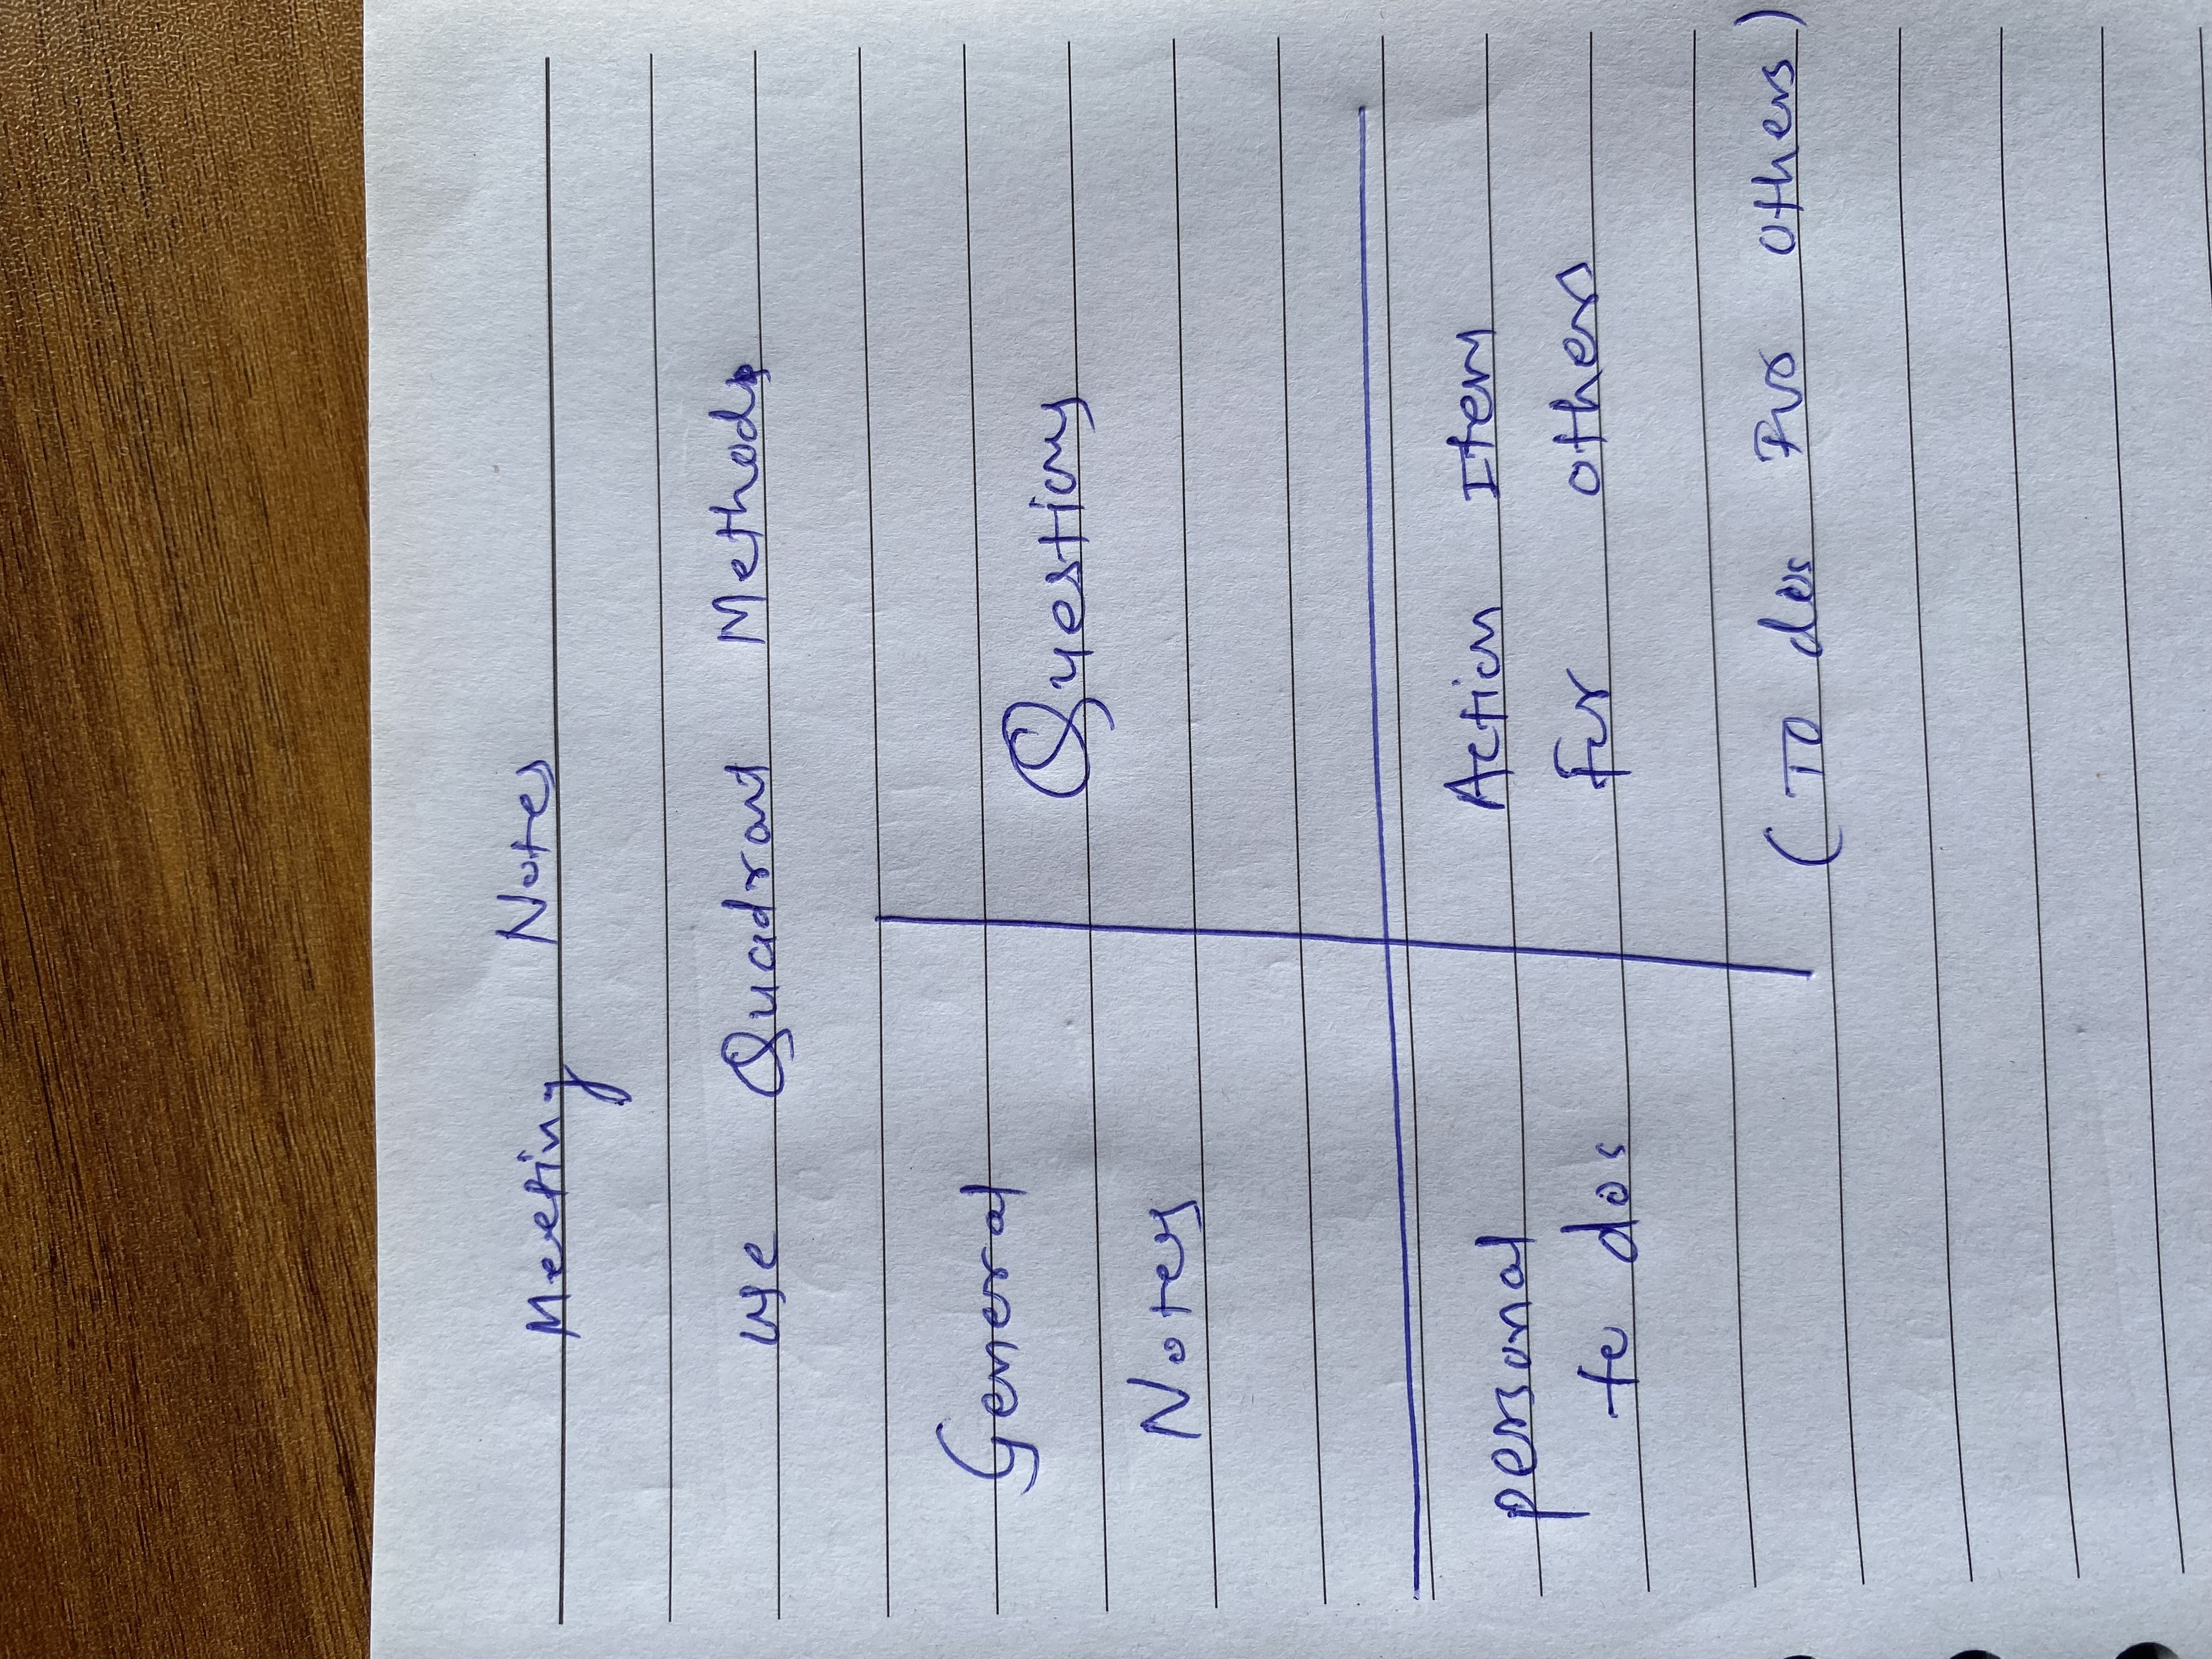 Meeting Notes
use Quadrant Methods
General
Notes
Questions
personal
to dos
Action Items
for others
(To dos For others)